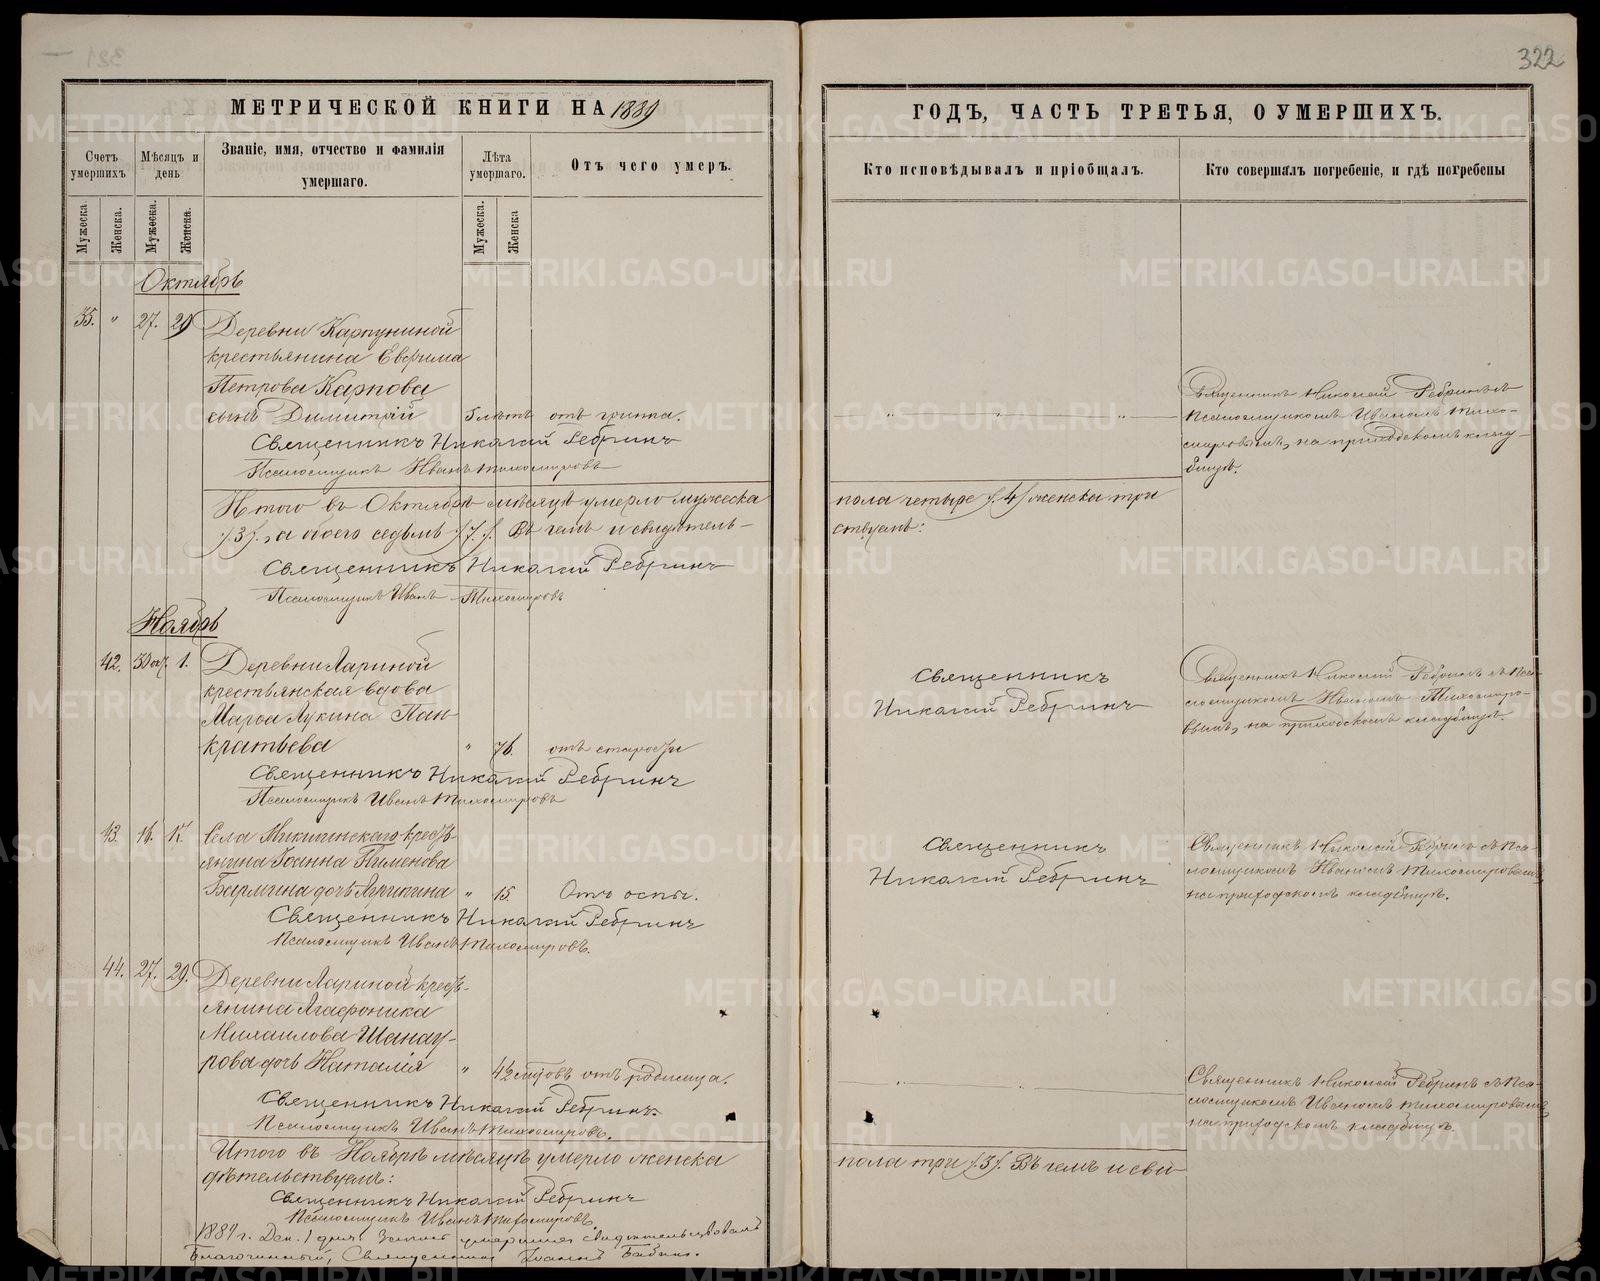 322
МЕТРИЧЕСКОЙ КНИГИ НА 1889
ГОДЪ, ЧАСТЬ ТРЕТЬЯ, О УМЕРШИХЪ.
Счетъ умершихъ
Мѣсяцъ и день
Званіе, имя, отчество и фамилія умершаго.
Лѣта умершаго.
Отъ чего умеръ.
Кто исповѣдывалъ и пріобщалъ.
Кто совершалъ погребеніе, и гдѣ погребены
Мужеска.
Женска.
Мужеска.
Женска.
Мужеска.
Женска
Октябрь
35. " 27. 29 Деревни Карпуниной
крестьянина Евфима
Петрова Карпова
сынъ Димитрій
отъ
Священникъ Николай Ребринъ
Псаломщикъ Иванъ Тихомировъ
Священникъ Николай Ребринъ съ
Псаломщикомъ Иваномъ Тихо-
мировымъ, на приходскомъ клад-
бищѣ.
Итого въ Октябрѣ мѣсяцѣ умерло мужеска
пола четыре /4/ женска три
/3/, а обоего седьмь /7/. Въ чемъ и свидѣтель-
ствуемъ:
Священникъ Николай Ребринъ
Псаломщикъ Иванъ Тихомировъ
Ноябрь
42. 30 окт. 1. Деревни Лариной
крестьянская вдова
Марѳа Лукина Пан-
кратьева " 76. отъ старости
Священникъ Николай Ребринъ
Псаломщикъ Иванъ Тихомировъ
Священникъ
Николай Ребринъ
Священникъ Николай Ребринъ съ Пса-
ломщикомъ Иваномъ Тихомиро-
вымъ, на приходскомъ кладбищѣ.
43. 16. 17. Села Микшинскаго крестъ-
янина Іоанна Пименова
дочь " 15. Отъ оспы.
Священникъ Николай Ребринъ
Псаломщикъ Иванъ Тихомировъ.
Священникъ
Николай Ребринъ
Священникъ Николай Ребринъ съ Пса-
ломщикомъ Иваномъ Тихомировымъ,
на приходскомъ кладбищѣ.
44. 27. 29. Деревни Лариной крестъ-
янина Агафоника
Михаилова Шанау-
рова дочь Наталія " отъ родимца.
Священникъ Николай Ребринъ
Псаломщикъ Иванъ Тихомировъ.
Священникъ Николай Ребринъ съ Пса-
ломщикомъ Иваномъ Тихомировымъ,
на приходскомъ кладбищѣ.
Итого въ Ноябрѣ мѣсяцѣ умерло женска
пола три /3/. Въ чемъ и сви-
дѣтельствуемъ:
Священникъ Николай Ребринъ
Псаломщикъ Иванъ Тихомировъ.
1889 г. Дек. 1 дня. умершихъ свидетельствовалъ
Благочинный, Священникъ Іоаннъ
METRIKI.GASO-URAL.RU